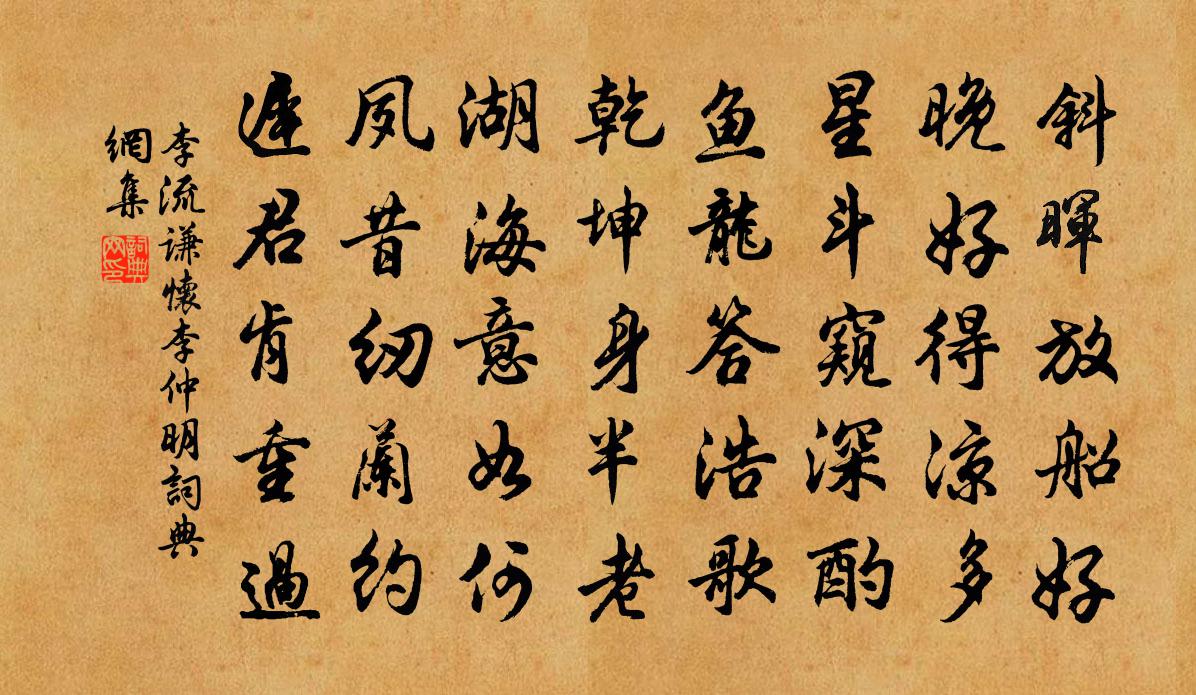 斜暉放船好
晚好得涼多
星斗窺深酌
魚龍答浩歌
乾坤身半老
湖海意如何
夙昔紉蘭約
遲君肯重過
李流謙懷李仲明詞典
網集
詞典
网印